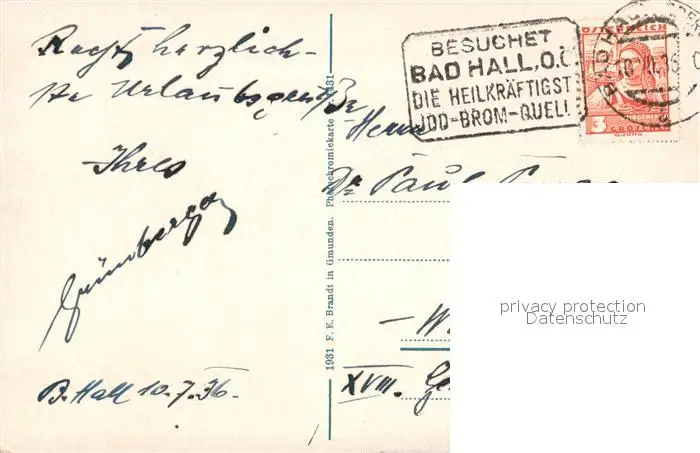 Recht herzlich-
ste Urlaubsgrüße
Ihres
Grünberger
B. Hall 10.7.36.
1931 F. E. Brandt in Gmunden. Photochromiekarte Nr. 431
BESUCHET
BAD HALL, O.Ö.
DIE HEILKRÄFTIGST
JOD-BROM-QUELL
ÖSTERREICH
3
GROSCHEN
Herrn
Dr. Paul
– W
XVIII. Ge
privacy protection
Datenschutz